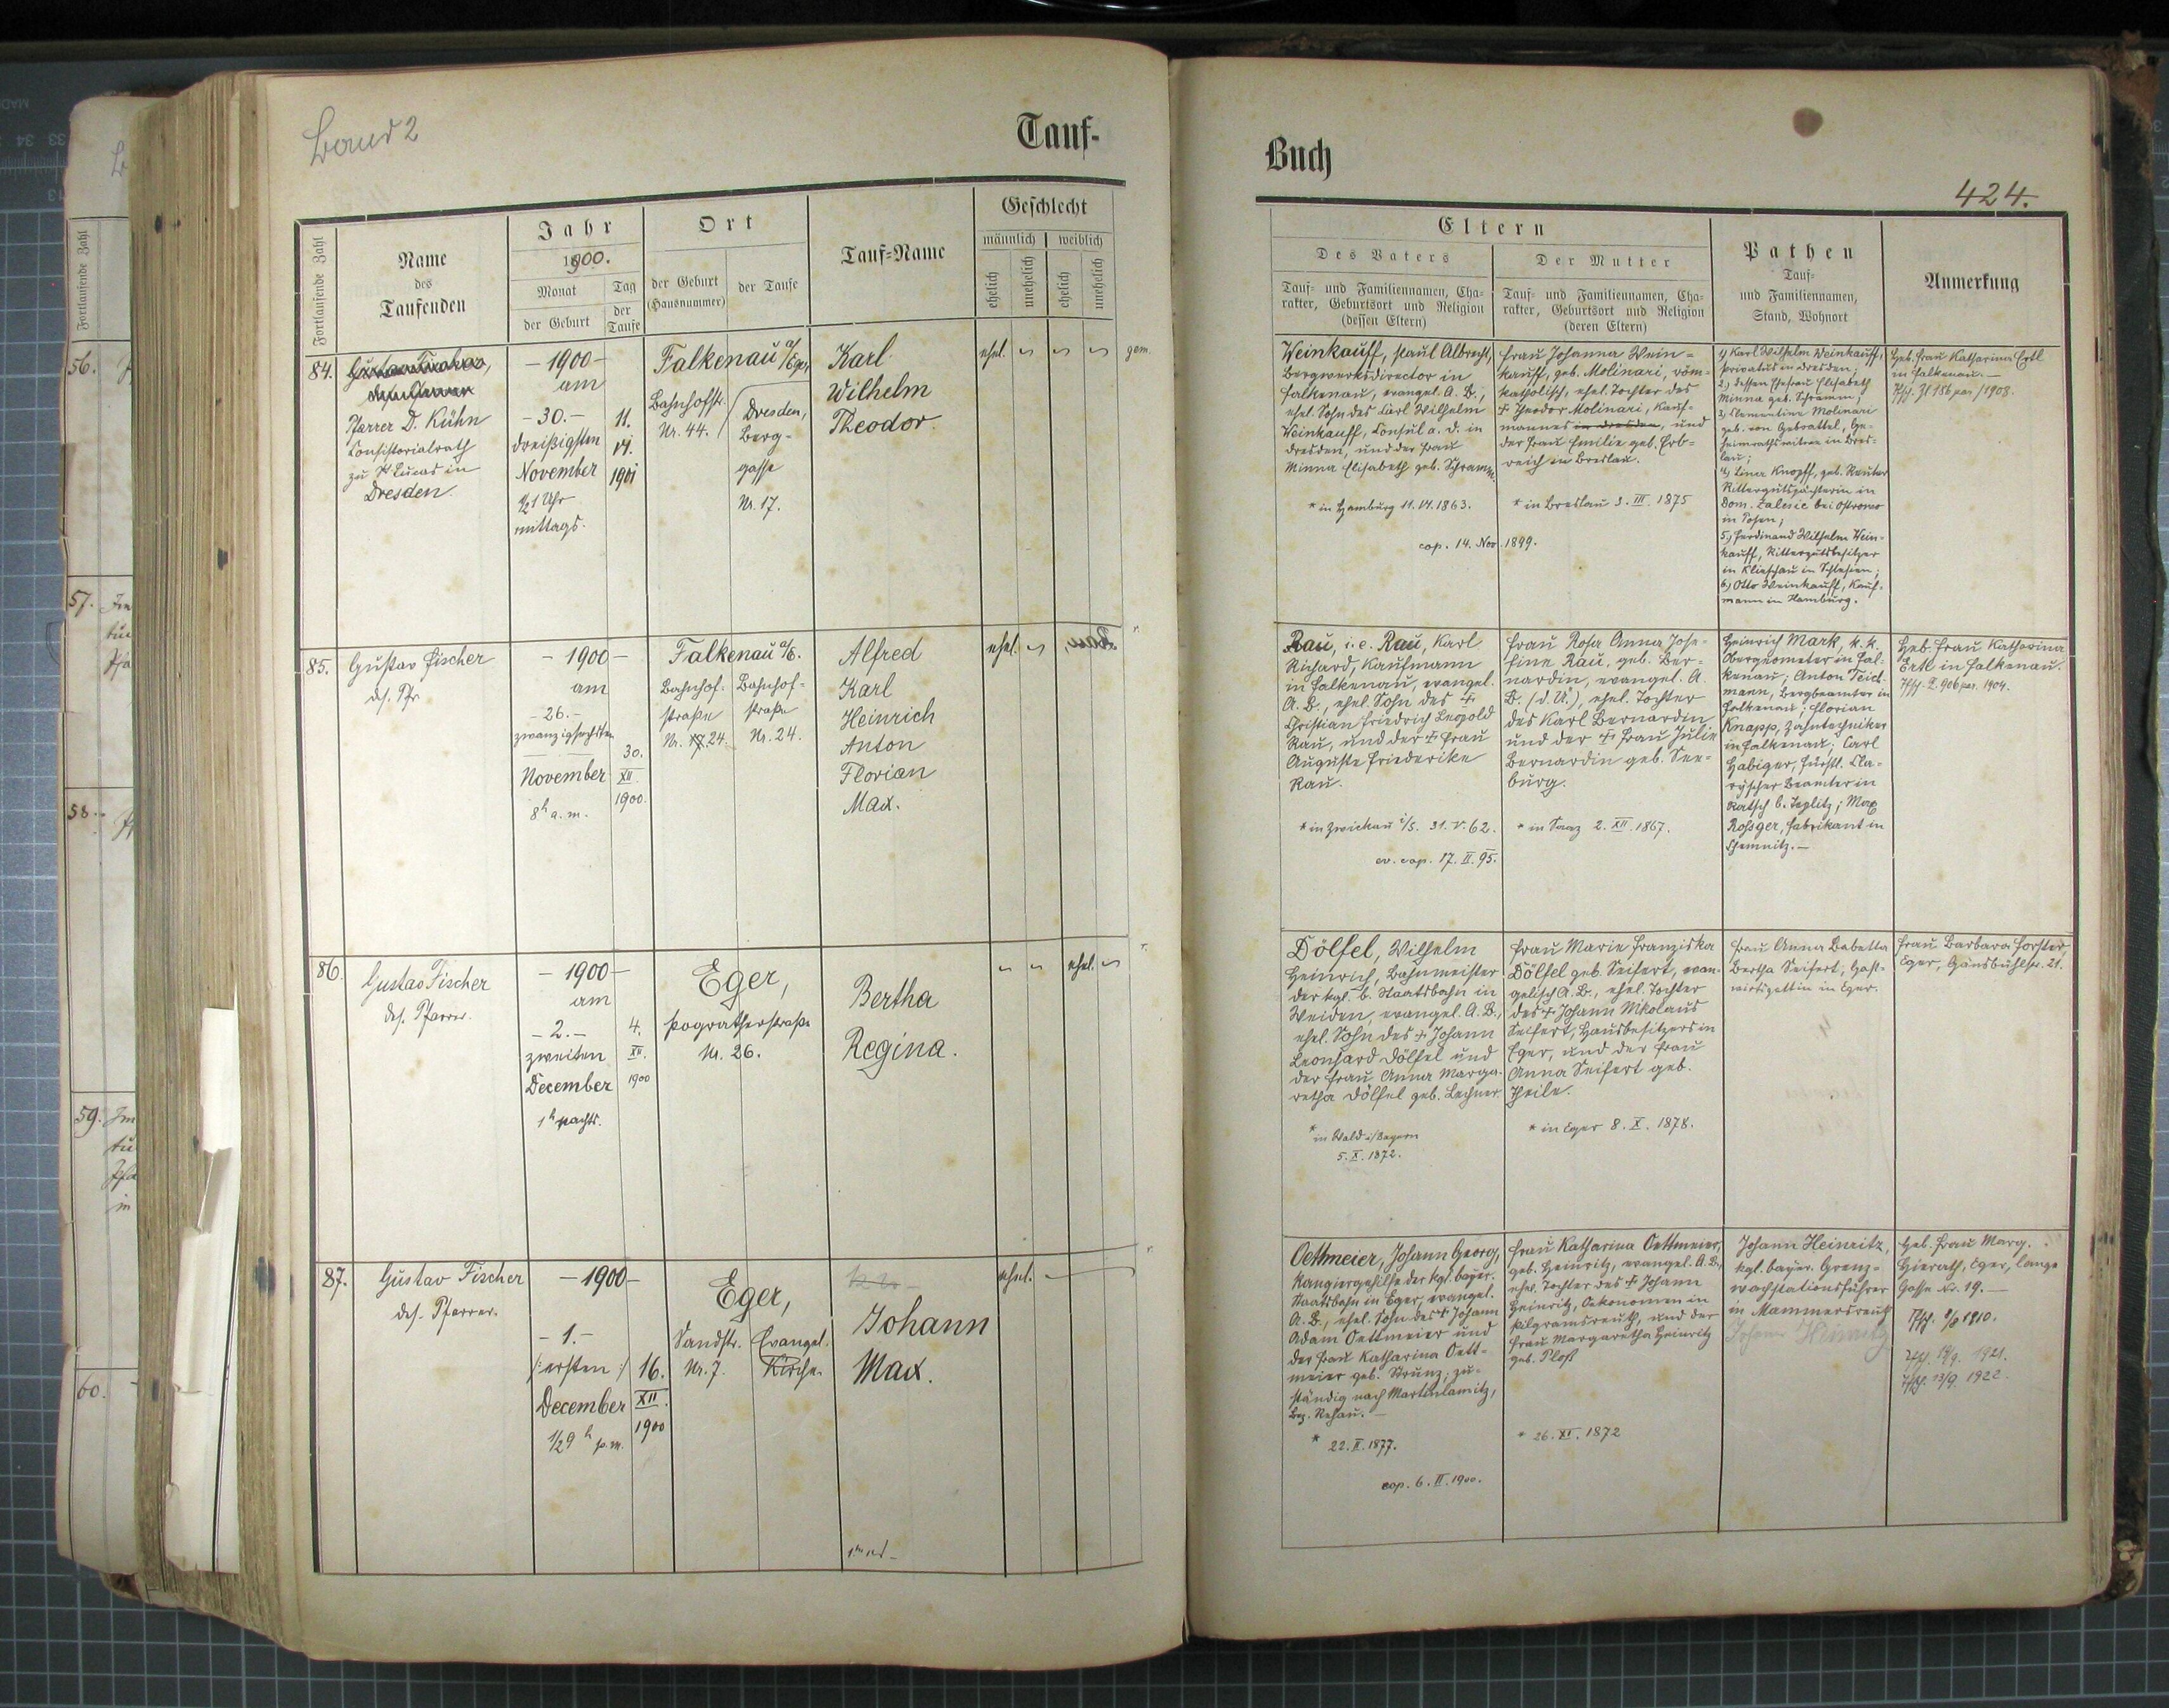 Band 2
Tauf-
Fortlaufende Zahl
Name
des
Taufenden
Jahr
1900.
Monat
Tag
der Geburt
der
Taufe
Ort
der Geburt
(Hausnummer)
der Taufe
Tauf-Name
Geschlecht
männlich
weiblich
ehelich
unehelich
ehelich
unehelich
84.
Pfarrer D. Kühn
Consistorialrath
zu St Lucas in
Dresden
- 1900 -
am
- 30. -
dreißigsten
November
½1 Uhr
mittags.
11.
VI.
1901
Falkenau a/Eger
Bahnhofstr.
Nr. 44.
Dresden,
Berg-
gasse
Nr. 17.
Karl
Wilhelm
Theodor
ehel.
gem.
85.
Gustav Fischer
- 1900 -
am
- 26. -
zwanzigsechsten
November
8h a. m.
30.
XII
1900.
Falkenau a/E.
Bahnhof-
straße
Nr. 24.
Bahnhof-
straße
Nr. 24.
Alfred
Karl
Heinrich
Anton
Florian
Max.
ehel.
86.
Gustav Fischer
Pfarrer.
- 1900 -
am
- 2. -
zweiten
December
1h nachts.
4.
XII.
1900
Eger,
Pogratherstraße
Nr. 26.
Bertha
Regina.
ehel.
87.
Gustav Fischer
Pfarrer.
- 1900 -
- 1. -
/: ersten :/
December
1/2 9 h p. m.
16.
XII.
1900
Eger,
Sandstr.
Nr. 7.
Evangel.
Kirche.
Johann
Max.
ehel.
56.
57.
58.
59.
60.
Buch
424.
Eltern
Des Vaters
Tauf- und Familiennamen, Cha-
rakter, Geburtsort und Religion
(dessen Eltern)
Der Mutter
Tauf- und Familiennamen, Cha-
rakter, Geburtsort und Religion
(deren Eltern)
Pathen
Tauf-
und Familiennamen,
Stand, Wohnort
Anmerkung
Weinkauff, Paul Albrecht,
Bergwerksdirector in
Falkenau, evangel. A. B.,
ehel. Sohn des Carl Wilhelm
Weinkauff, Consul a. D. in
Dresden, und der Frau
Minna Elisabeth geb. Schramm.
* in Hamburg 11. VI. 1863.
cop. 14. Nov. 1899.
Frau Johanna Wein-
kauff, geb. Molinari, röm-
katholisch, ehel. Tochter des
+ Theodor Molinari, Kauf-
mannes in Dresden, und
der Frau Emilie geb. Erb-
reich in Breslau.
* in Breslau 3. III. 1875
1) Karl Wilhelm Weinkauff,
Privatus in Dresden;
2.) dessen Ehefrau Elisabeth
Minna geb. Schramm;
3) Clementine Molinari
geb. von Gebsattel, Ge-
heimrathswitwe in Bres-
lau;
4) Lina Knopff, geb. Reuter
Rittergutspächterin in
Dom. Zalesie bei Ostrowo
in Posen;
5) Ferdinand Wilhelm Wein-
kauff, Rittergutsbesitzer
in Klieschau in Schlesien;
6) Otto Weinkauff, Kauf-
mann in Hamburg.
Heb. Frau Katharina Ertl
in Falkenau. -
Rau, i. e. Rau, Karl
Richard, Kaufmann
in Falkenau, evangel.
A. B., ehel. Sohn des +
Christian Friedrich Leopold
Rau, und der + Frau
Auguste Friederike
Rau.
* in Zwickau i/S. 31. V. 62.
ev. cop. 17. II. 95.
Frau Rosa Anna Jose-
fine Rau, geb. Ber-
nardin, evangel. A.
B. (d. Ü.), ehel. Tochter
des Karl Bernardin
und der + Frau Julie
Bernardin geb. See-
burg.
* in Saaz 2. XII. 1867.
Heinrich Mark, k. k.
Obergeometer in Fal-
kenau; Anton Teich-
mann, Bergbeamter in
Falkenau; Florian
Knapp, Zahntechniker
in Falkenau; Carl
Habiger, fürstl. Cla-
ry'scher Beamter in
Ratsch b. Teplitz; Max
Rossger, Fabrikant in
Chemnitz. -
Heb. Frau Katharina
Ertl in Falkenau.
Dölfel, Wilhelm
Heinrich, Bahnmeister
der kgl. b. Staatsbahn in
Weiden, evangel. A. B.,
ehel. Sohn des + Johann
Leonhard Dölfel und
der Frau Anna Marga-
retha Dölfel geb. Lechner.
* in Wald i/Bayern
5. X. 1872.
Frau Marie Franziska
Dölfel geb. Seifert, evan-
gelisch A. B., ehel. Tochter
des + Johann Nikolaus
Seifert, Hausbesitzers in
Eger, und der Frau
Anna Seifert geb.
Theile.
* in Eger 8. X. 1878.
Frau Anna Babetta
Bertha Seifert, Gast-
wirtsgattin in Eger.
Frau Barbara Forster,
Eger, Gänsbühlstr. 21.
Oettmeier, Johann Georg,
Rangiergehilfe der kgl. bayer.
Staatsbahn in Eger, evangel.
A. B., ehel. Sohn des + Johann
Adam Oettmeier und
der Frau Katharina Oett-
meier geb. Strunz; zu-
ständig nach Martinlamitz,
Bez. Rehau. -
* 22. II. 1877.
cop. 6. II. 1900.
Frau Katharina Oettmeier,
geb. Heinritz, evangel. A. B.,
ehel. Tochter des + Johann
Heinritz, Oekonomen in
Pilgramsreuth, und der
Frau Margaretha Heinritz
geb. Ploß
* 26. XI. 1872
Johann Heinritz,
kgl. bayer. Grenz-
wachstationsführer
in Mammersreuth
Johann Heinritz
Heb. Frau Marg.
Hierath, Eger, lange
Gasse Nr. 19. -